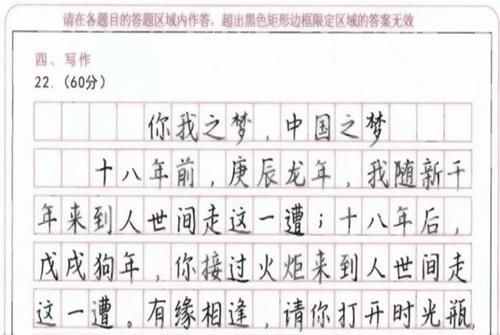 请在各题目的答题区域内作答，超出黑色矩形边框限定区域的答案无效
四、写作
22.（60分）
你我之梦，中国之梦
十八年前，庚辰龙年，我随新千
年来到人世间走这一遭；十八年后，
戊戌狗年，你接过火炬来到人世间走
这一遭。有缘相逢，请你打开时光瓶，